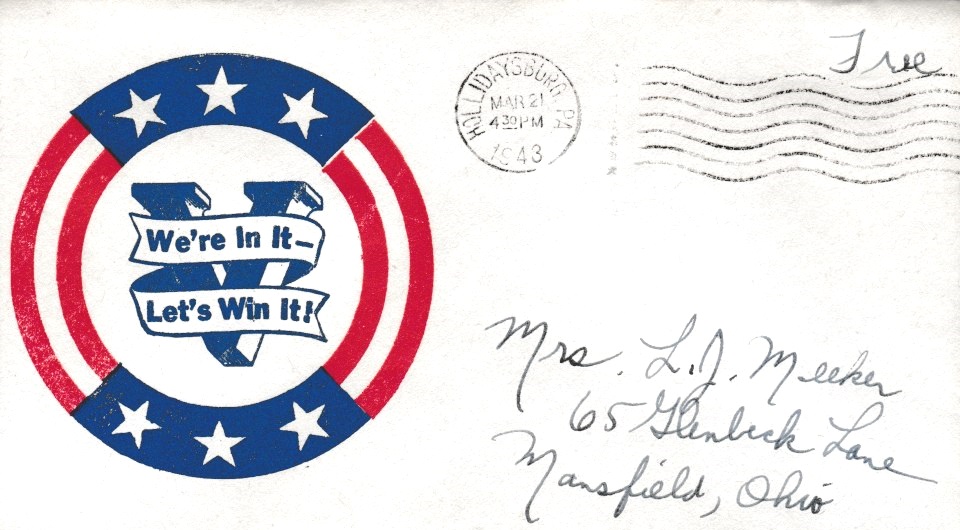 Free
HOLLIDAYSBURG, PA.
MAR 21
4 30 PM
1943
V
We're In It—
Let's Win It!
Mrs. L. J. Meeker
65 Glenbeck Lane
Mansfield, Ohio